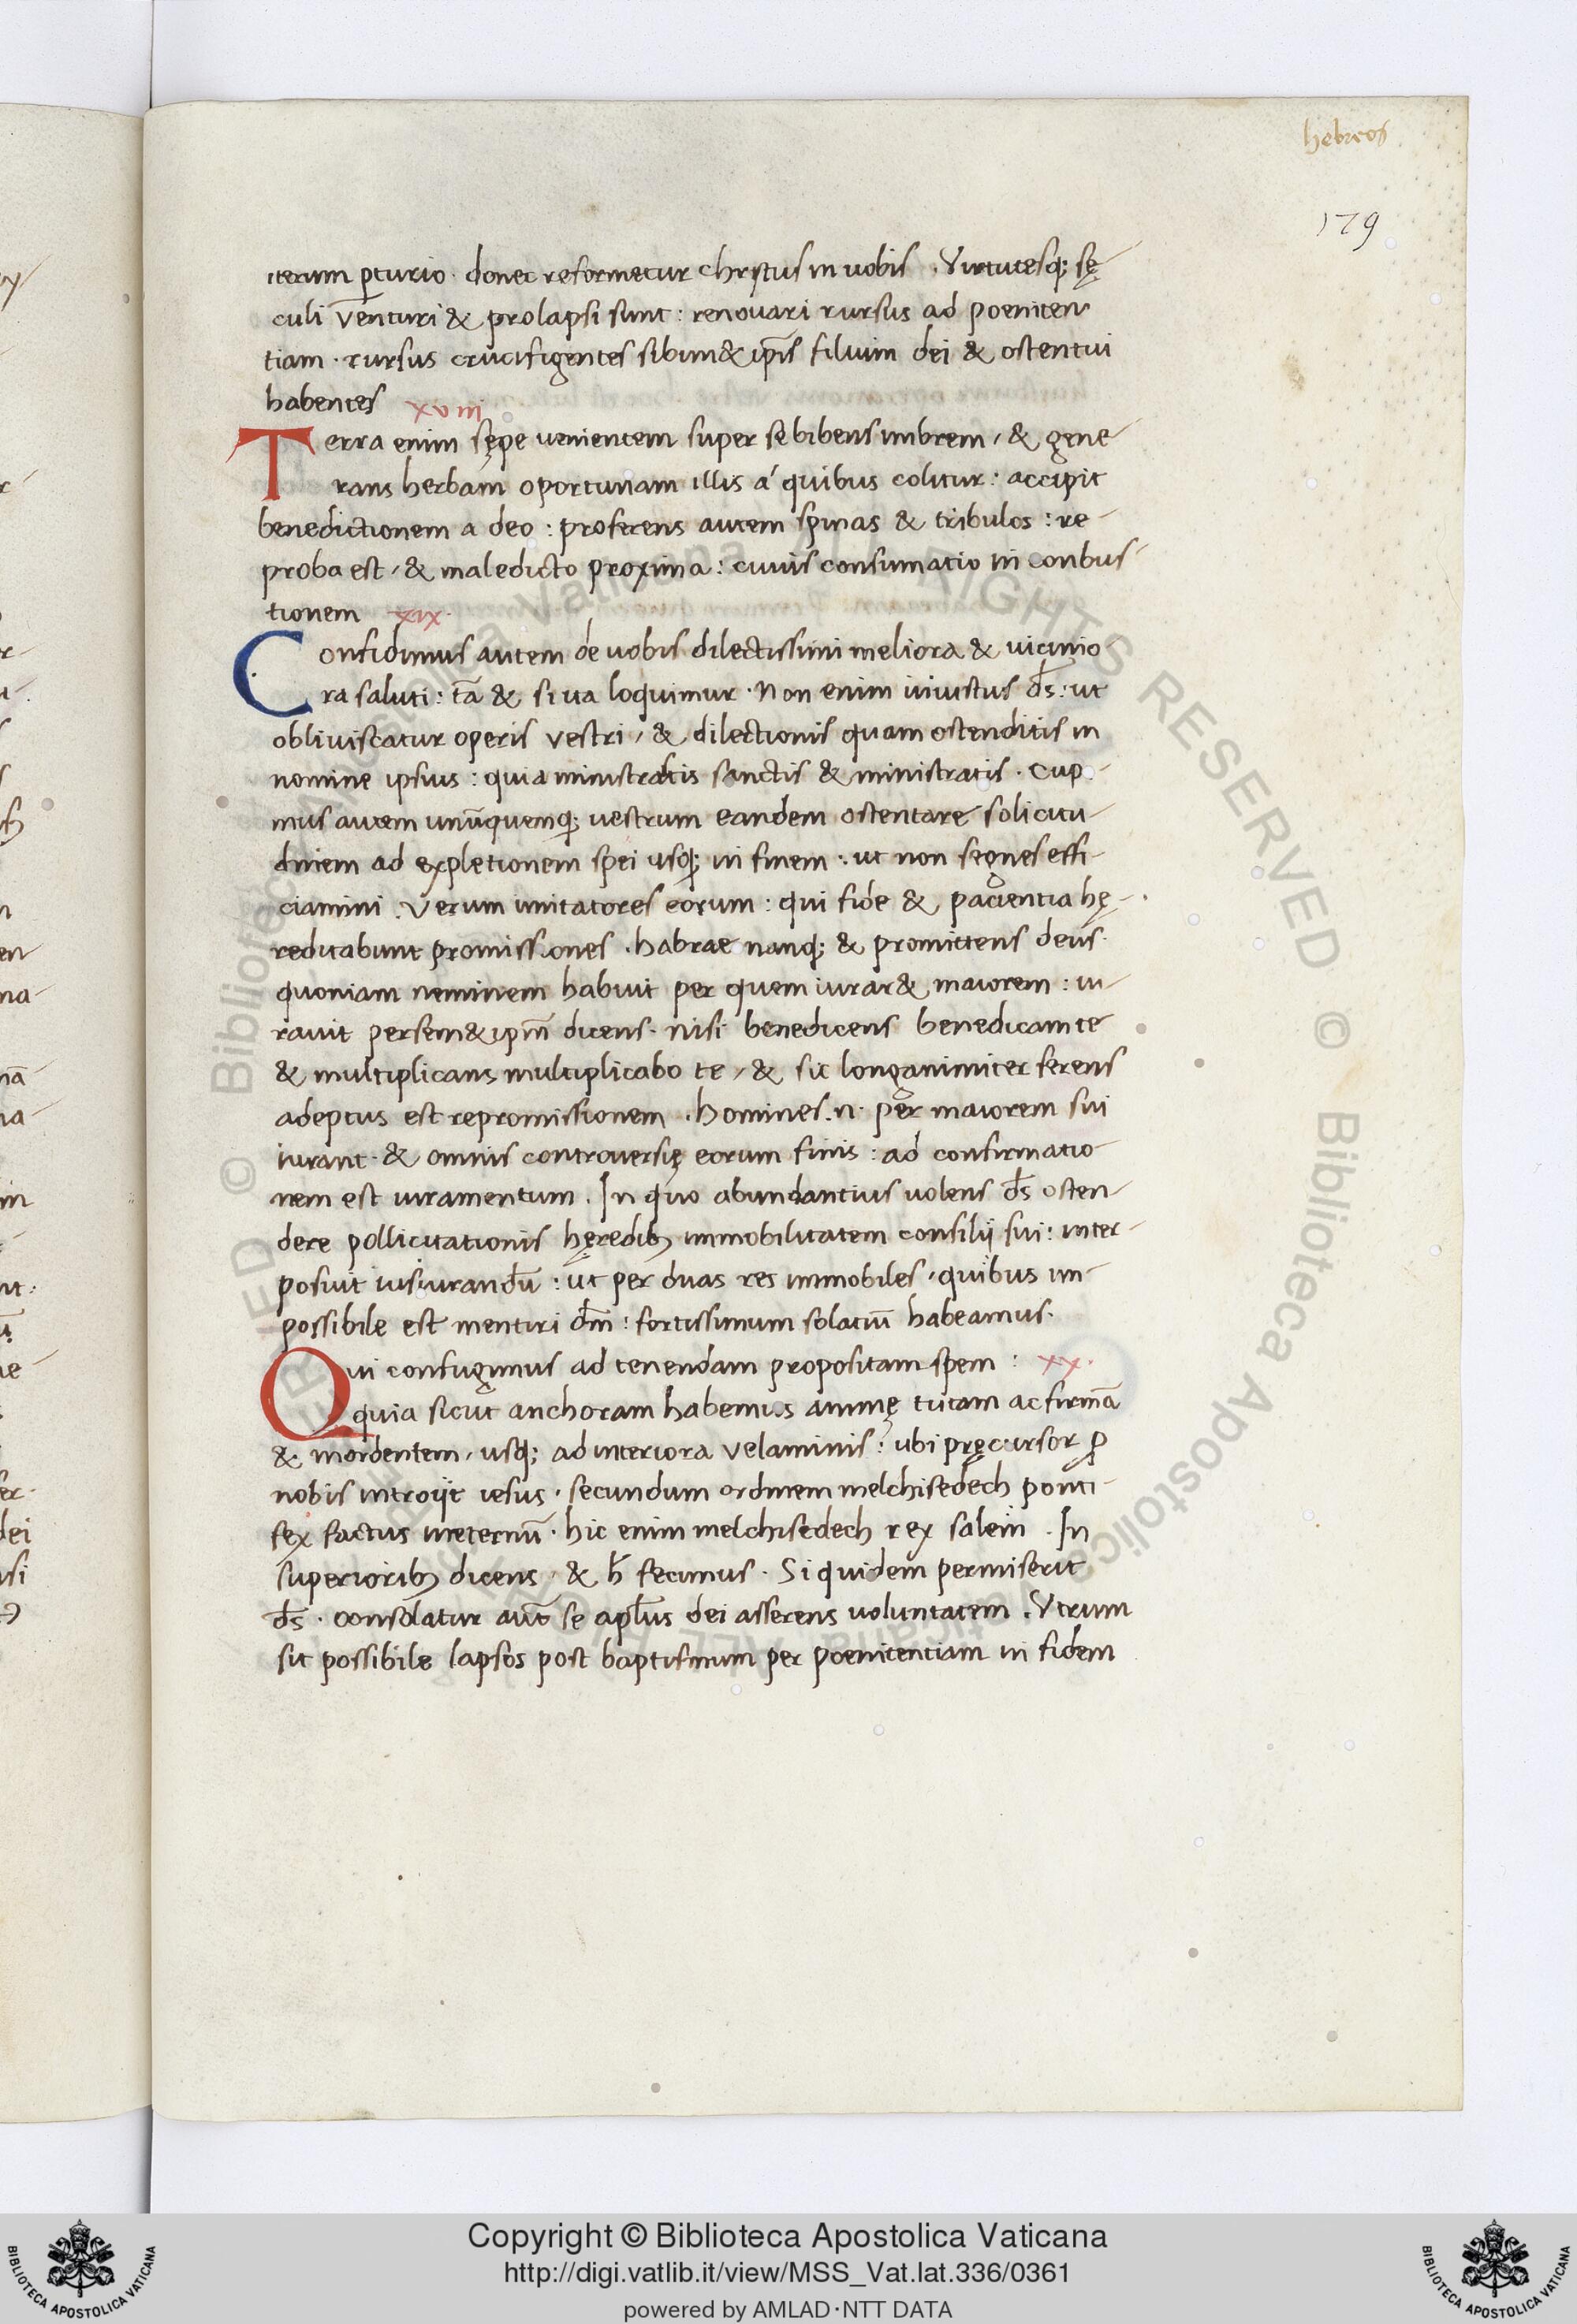 hebreos
179
iterum p̱turio. donec reformetur christus in uobis. Virtutesq; sę
culi venturi & prolapsi sunt: renouari rursus ad poeniten
tiam. rursus crucifigentes sibim& ip̄is filium dei & ostentui
habentes xviii
Terra enim sępe uenientem super se bibens imbrem, & gene
rans herbam oportunam illis á quibus colitur: accipit
benedictionem a deo: proferens autem spinas & tribulos: re
proba est, & maledicto proxima: cuius consumatio in conbus
tionem xix.
Confidimus autem de uobis dilectissimi meliora & uicinio
ra saluti: tā & si ita loquimur. Non enim iniustus d̄s: ut
obliuiscatur operis vestri, & dilectionis quam ostenditis in
nomine ipsius: quia ministratis sanctis & ministratis. Cupi
mus autem unūquemq; uestrum eandem ostentare solicitu
dinem ad expletionem spei usq; in finem: ut non segnes effi
ciamini. Verum imitatores eorum: qui fide & pacientia hę
reditabunt promissiones. habrae nanq; & promittens deus.
quoniam neminem habuit per quem iurar& maiorem: iu
rauit persem&ipm̄ dicens. nisi benedicens benedicam te
& multiplicans multiplicabo te, & sic longanimiter ferens
adeptus est repromissionem. homines .n. per maiorem sui
iurant. & omnis controuersię eorum finis: ad confirmatio
nem est iuramentum. In quo abundantius uolens d̄s osten
dere pollicitationis hęredib; immobilitatem consilij sui: inter
posuit iusiurandū: ut per duas res immobiles, quibus im
possibile est mentiri dm̄: fortissimum solatiū habeamus.
Qui confugimus ad tenendam propositam spem: xx.
quia sicut anchoram habemus animę tutam ac firmā
& mordentem, usq; ad interiora velaminis: ubi pręcursor ꝓ
nobis introijt iesus. secundum ordinem melchisedech ponti
fex factus ineternū. hic enim melchisedech rex salem. In
superiorib; dicens. & h̄ fecimus. Si quidem permiserit
d̄s. consolatur aut̄ se apl̄us dei asserens voluntatem. Vtrum
sit possibile lapsos post baptismum per poenitentiam in fidem
© Biblioteca Apostolica Vaticana
Copyright © Biblioteca Apostolica Vaticana
http://digi.vatlib.it/view/MSS_Vat.lat.336/0361
powered by AMLAD·NTT DATA
BIBLIOTECA APOSTOLICA VATICANA
BIBLIOTECA APOSTOLICA VATICANA